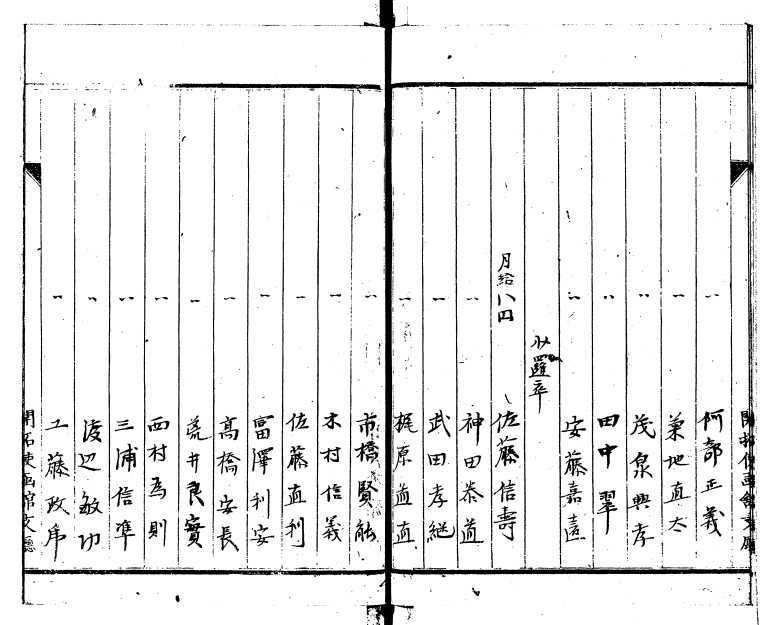 〃 阿部正義
〃 菊地直太
〃 茂泉興孝
〃 田中翠
〃 安藤嘉園
少邏卒
月給八円 佐藤信壽
〃 神田泰道
〃 武田孝継
〃 梶原道直
〃 市橋賢能
〃 木村信義
〃 佐藤直利
〃 富澤利安
〃 高橋安長
〃 荒井良實
〃 西村為則
〃 三浦信準
〃 渡辺敏功
〃 工藤政席
開拓使函館支廳